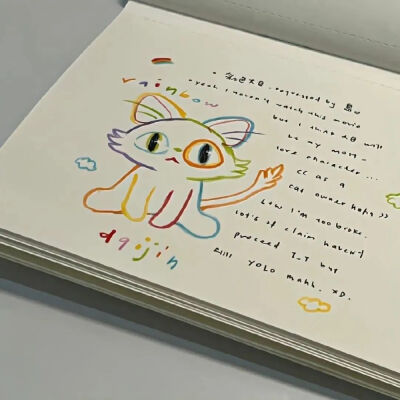 rainbow
requested by
yeah I haven't watch this movie
but I think 大臣 will
be my most-
love character...
(( as a
cat owner haha ))
btw I'm too broke.
lots of claim haven't
proceed T-T but
still YOLO mahh. XD.
daijin